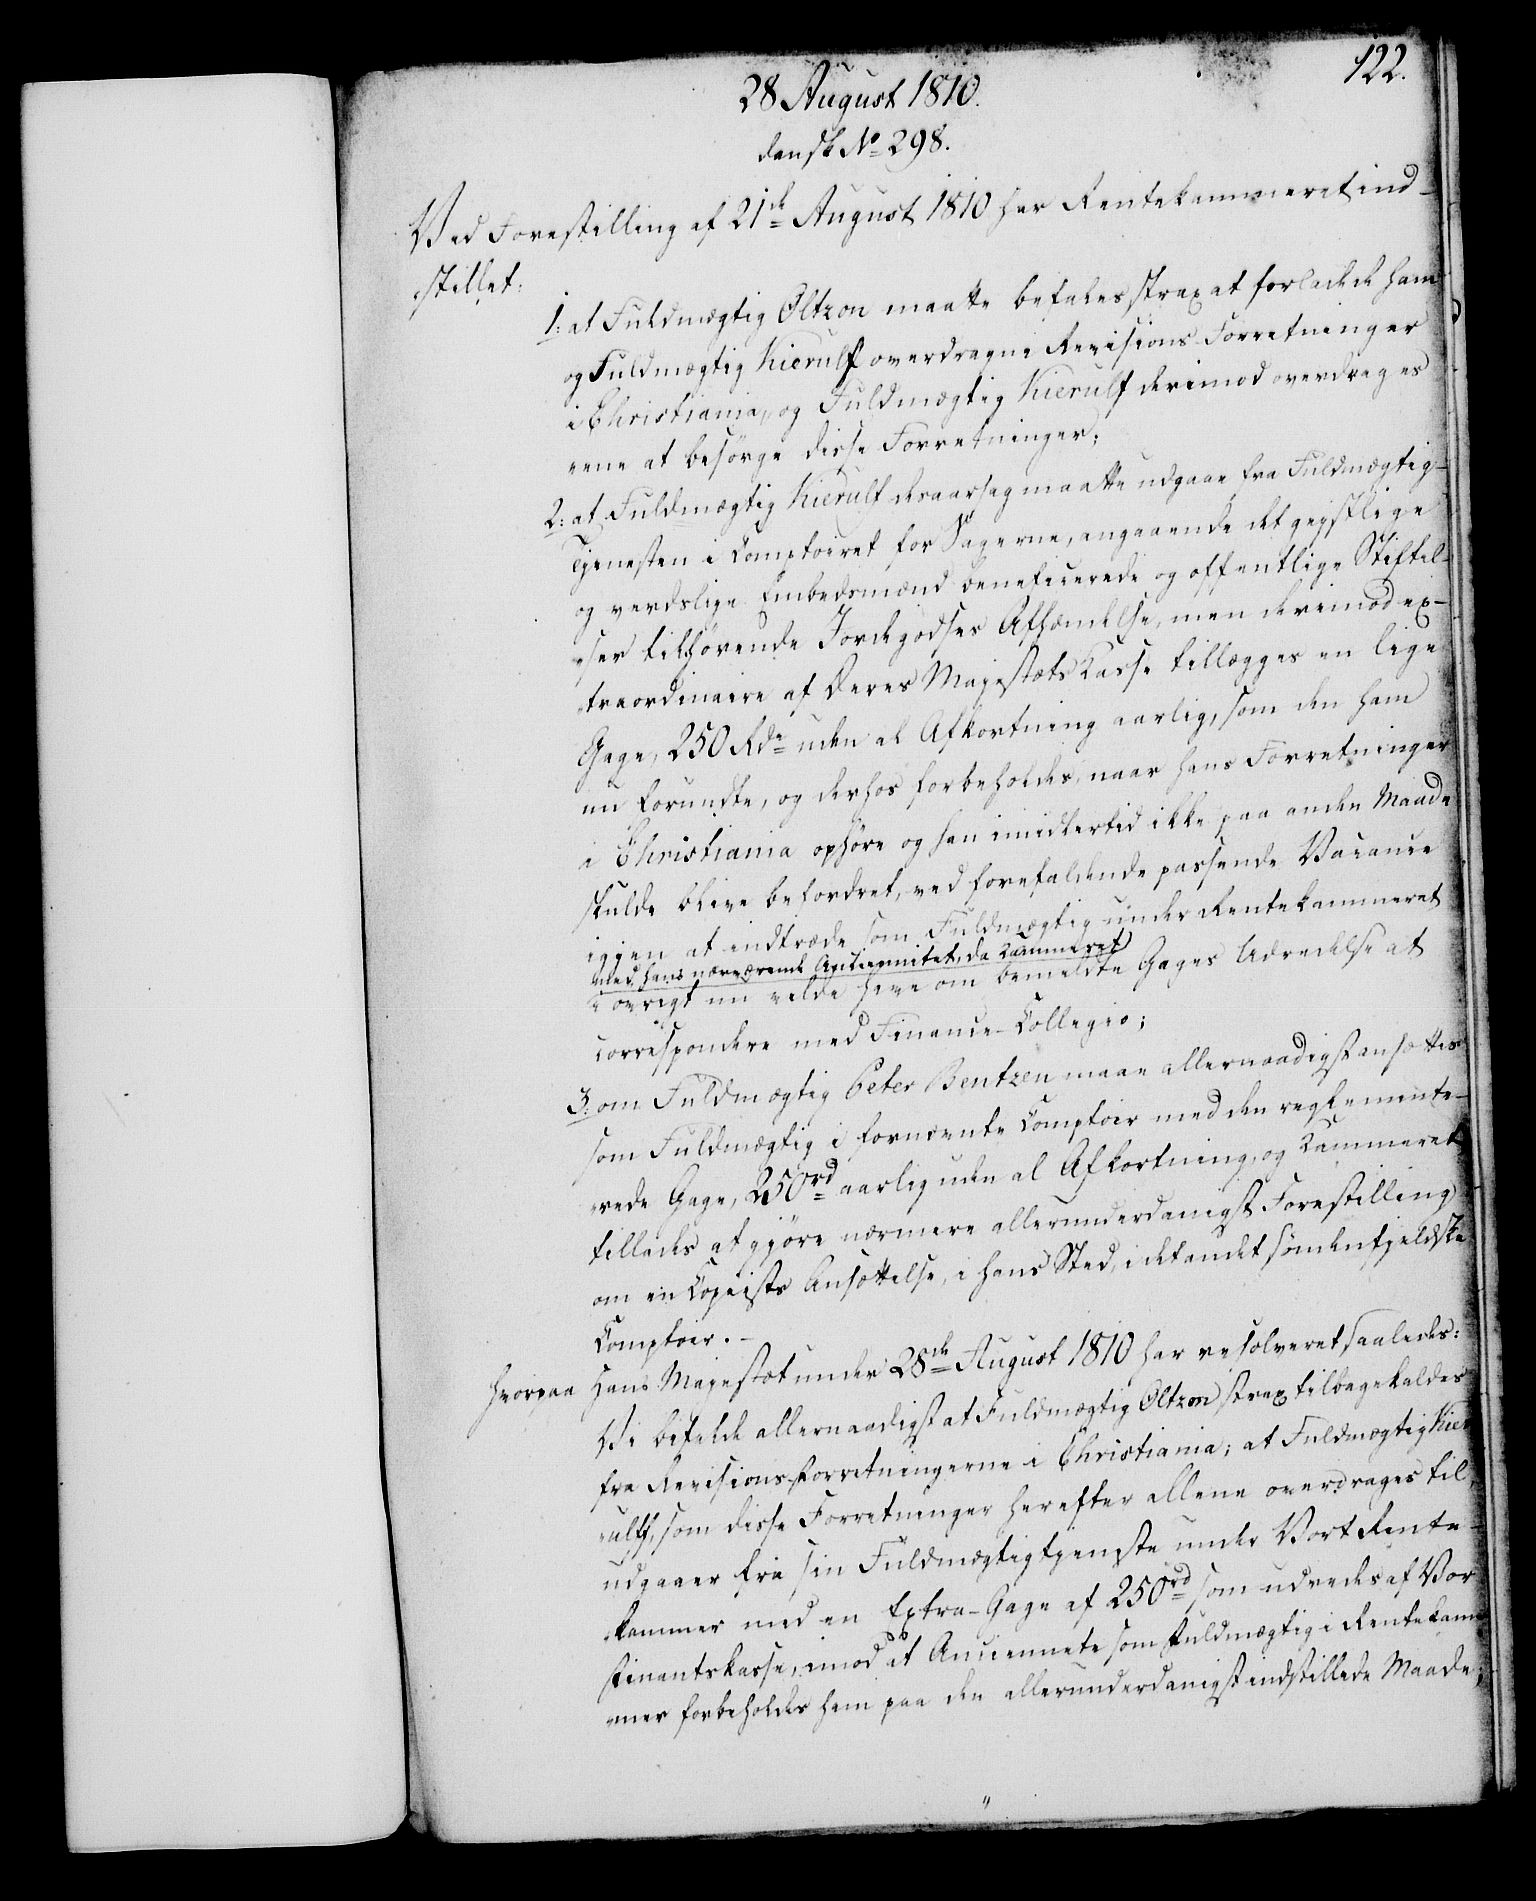 122.
28 August 1810.
dansk No 298.
Ved Forestilling af 21de August 1810 har Rentekammeret ind-
stillet:
1: at Fuldmægtig Oltzon maatte befales strax at forlade de ham
og Fuldmægtig Kierulf overdragne Revisions-Forretninger
i Christiania, og Fuldmægtig Kierulf derimod overdrages
ene at besørge disse Forretninger;
2: at Fuldmægtig Kierulf desaarsag maatte udgaae fra Fuldmægtig-
Tjenesten i Comptoiret for Sagerne, angaaende det geistlige
og verdslige Embedsmænd beneficerede og offentlige Stiftel-
ser tilhørende Jordegodses Afhændelse, men derimod ex-
traordinaire af Deres Majestæts Kasse tillægges en lige
Gage, 250 Rdr uden al Afkortning aarlig, som den ham
nu forundte, og derhos forbeholdes, naar hans Forretninger
i Christiania ophøre og han imidlertid ikke paa anden Maade
skulde blive befordret, ved forefaldende passende Vacance
igjen at indtræde som Fuldmægtig under Rentekammeret
med hans nærværende Anciennitet, da Kammeret
i øvrigt nu vilde have om bemeldte Gages Udredelse at
correspondere med Finance-Collegio;
3: om Fuldmægtig Peter Bentzen maae allernaadigst ansættes
som Fuldmægtig i fornævnte Comptoir med den reglemente-
rede Gage, 250rd aarlig uden al Afkortning, og Kammeret
tillades at gjøre nærmere allerunderdanigst Forestilling
om en Copiists Ansættelse, i hans Sted, i det andet søndenfjeldske
Comptoir. -
hvorpaa Hans Majestæt under 28de August 1810 har resolveret saaledes:
Vi befale allernaadigst at Fuldmægtig Oltzon strax tilbagekaldes
fra Revisionsforretningerne i Christiania; at Fuldmægtig Kier
ulff, som disse Forretninger herefter allene overdrages til,
udgaaer fra sin Fuldmægtigtjeneste under Vort Rente-
kammer med en Extra-Gage af 250rd som udredes af Vor
Finantskasse, imod at Anciennete som Fuldmægtig i Rentekam
mer forbeholdes ham paa den allerunderdanigst indstillede Maade;